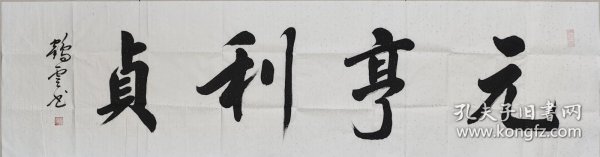 元亨利貞
鶴雲书
孔夫子旧书网
www.kongfz.com